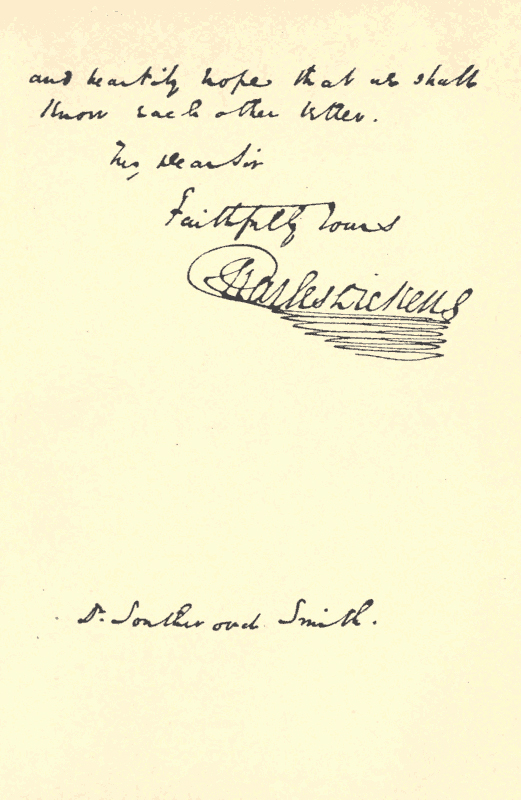 and heartily hope that we shall
know each other better.
My Dear Sir
Faithfully Yours
Charles Dickens
Dr. Southwood Smith.